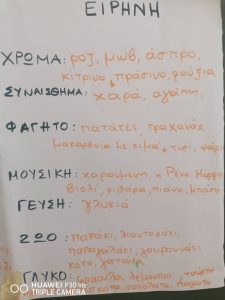 ΕΙΡΗΝΗ
ΧΡΩΜΑ: ροζ, μωβ, άσπρο,
κίτρινο, πράσινο, φούξια
ΣΥΝΑΙΣΘΗΜΑ: χαρά, αγάπη,
ΦΑΓΗΤΟ: πατάτες, τραχανάς,
μακαρόνια με κιμά, τυρί, ψάρι
ΜΟΥΣΙΚΗ: χαρούμενη,
βιολί, κιθάρα, πιάνο, μπάσο
ΓΕΥΣΗ: γλυκιά
ΖΩΟ: παπάκι, λιονταράκι,
παπαγαλάκι, γουρουνάκι
κότα, γατούλα
ΓΛΥΚΟ:
HUAWEI P30 lite
TRIPLE CAMERA